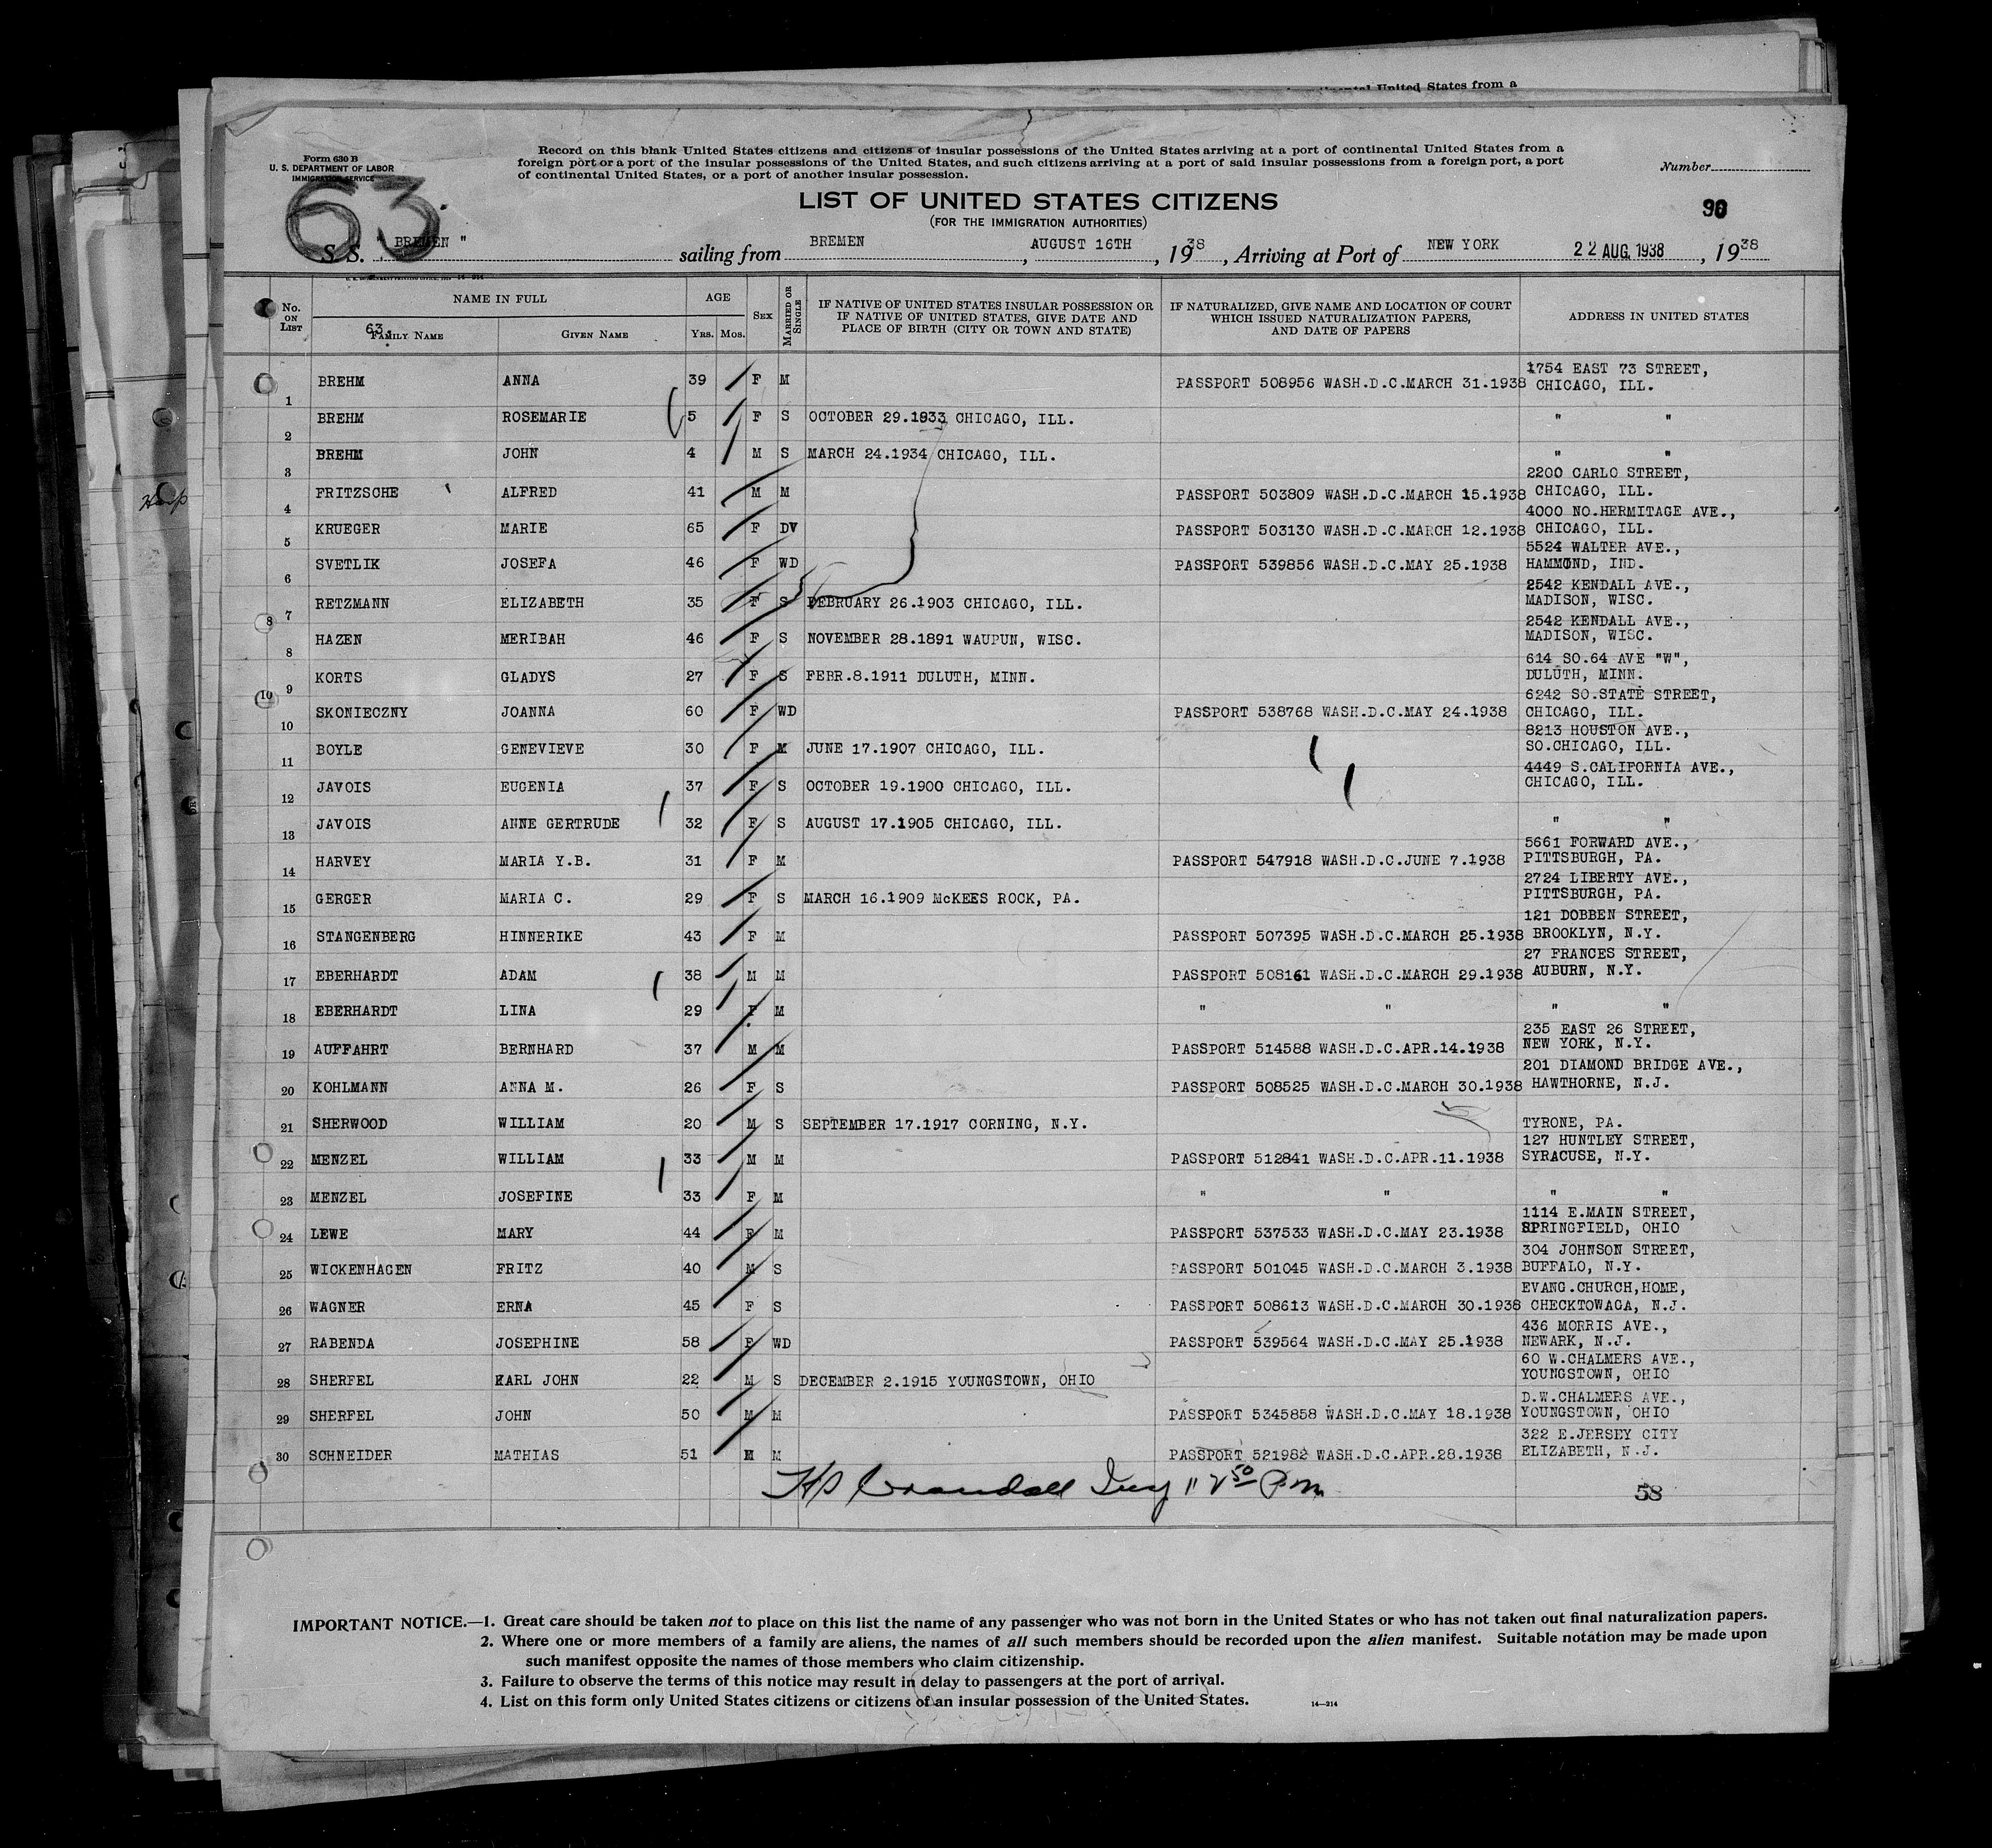 continental United States from a
Form 630 B
U. S. DEPARTMENT OF LABOR
IMMIGRATION SERVICE
63
Record on this blank United States citizens and citizens of insular possessions of the United States arriving at a port of continental United States from a
foreign port or a port of the insular possessions of the United States, and such citizens arriving at a port of said insular possessions from a foreign port, a port
of continental United States, or a port of another insular possession.
Number
LIST OF UNITED STATES CITIZENS
(FOR THE IMMIGRATION AUTHORITIES)
90
S S. " BREMEN " sailing from BREMEN , AUGUST 16TH , 19 38 , Arriving at Port of NEW YORK 22 AUG. 1938 , 19 38
No. ON LIST NAME IN FULL AGE SEX MARRIED OR SINGLE IF NATIVE OF UNITED STATES INSULAR POSSESSION OR IF NATIVE OF UNITED STATES, GIVE DATE AND PLACE OF BIRTH (CITY OR TOWN AND STATE) IF NATURALIZED, GIVE NAME AND LOCATION OF COURT WHICH ISSUED NATURALIZATION PAPERS, AND DATE OF PAPERS ADDRESS IN UNITED STATES
63.
FAMILY NAME GIVEN NAME YRS. MOS.
1 BREHM ANNA 39 F M PASSPORT 508956 WASH.D.C.MARCH 31.1938 1754 EAST 73 STREET, CHICAGO, ILL.
2 BREHM ROSEMARIE 5 F S OCTOBER 29.1933 CHICAGO, ILL. " "
3 BREHM JOHN 4 M S MARCH 24.1934 CHICAGO, ILL. " "
4 FRITZSCHE ALFRED 41 M M PASSPORT 503809 WASH.D.C.MARCH 15.1938 2200 CARLO STREET, CHICAGO, ILL.
5 KRUEGER MARIE 65 F DV PASSPORT 503130 WASH.D.C.MARCH 12.1938 4000 NO.HERMITAGE AVE., CHICAGO, ILL.
6 SVETLIK JOSEFA 46 F WD PASSPORT 539856 WASH.D.C.MAY 25.1938 5524 WALTER AVE., HAMMOND, IND.
7 RETZMANN ELIZABETH 35 F S FEBRUARY 26.1903 CHICAGO, ILL. 2542 KENDALL AVE., MADISON, WISC.
8 HAZEN MERIBAH 46 F S NOVEMBER 28.1891 WAUPUN, WISC. 2542 KENDALL AVE., MADISON, WISC.
9 KORTS GLADYS 27 F S FEBR.8.1911 DULUTH, MINN. 614 SO.64 AVE "W", DULUTH, MINN.
10 SKONIECZNY JOANNA 60 F WD PASSPORT 538768 WASH.D.C.MAY 24.1938 6242 SO.STATE STREET, CHICAGO, ILL.
11 BOYLE GENEVIEVE 30 F M JUNE 17.1907 CHICAGO, ILL. 8213 HOUSTON AVE., SO.CHICAGO, ILL.
12 JAVOIS EUGENIA 37 F S OCTOBER 19.1900 CHICAGO, ILL. 4449 S.CALIFORNIA AVE., CHICAGO, ILL.
13 JAVOIS ANNE GERTRUDE 32 F S AUGUST 17.1905 CHICAGO, ILL. " "
14 HARVEY MARIA Y.B. 31 F M PASSPORT 547918 WASH.D.C.JUNE 7.1938 5661 FORWARD AVE., PITTSBURGH, PA.
15 GERGER MARIA C. 29 F S MARCH 16.1909 McKEES ROCK, PA. 2724 LIBERTY AVE., PITTSBURGH, PA.
16 STANGENBERG HINNERIKE 43 F M PASSPORT 507395 WASH.D.C.MARCH 25.1938 121 DOBBEN STREET, BROOKLYN, N.Y.
17 EBERHARDT ADAM 38 M M PASSPORT 508161 WASH.D.C.MARCH 29.1938 27 FRANCES STREET, AUBURN, N.Y.
18 EBERHARDT LINA 29 F M " " " "
19 AUFFAHRT BERNHARD 37 M M PASSPORT 514588 WASH.D.C.APR.14.1938 235 EAST 26 STREET, NEW YORK, N.Y.
20 KOHLMANN ANNA M. 26 F S PASSPORT 508525 WASH.D.C.MARCH 30.1938 201 DIAMOND BRIDGE AVE., HAWTHORNE, N.J.
21 SHERWOOD WILLIAM 20 M S SEPTEMBER 17.1917 CORNING, N.Y. TYRONE, PA.
22 MENZEL WILLIAM 33 M M PASSPORT 512841 WASH.D.C.APR.11.1938 127 HUNTLEY STREET, SYRACUSE, N.Y.
23 MENZEL JOSEFINE 33 F M " " " "
24 LEWE MARY 44 F M PASSPORT 537533 WASH.D.C.MAY 23.1938 1114 E.MAIN STREET, SPRINGFIELD, OHIO
25 WICKENHAGEN FRITZ 40 M S PASSPORT 501045 WASH.D.C.MARCH 3.1938 304 JOHNSON STREET, BUFFALO, N.Y.
26 WAGNER ERNA 45 F S PASSPORT 508613 WASH.D.C.MARCH 30.1938 EVANG.CHURCH,HOME, CHECKTOWAGA, N.J.
27 RABENDA JOSEPHINE 58 F WD PASSPORT 539564 WASH.D.C.MAY 25.1938 436 MORRIS AVE., NEWARK, N.J.
28 SHERFEL KARL JOHN 22 M S DECEMBER 2.1915 YOUNGSTOWN, OHIO 60 W.CHALMERS AVE., YOUNGSTOWN, OHIO
29 SHERFEL JOHN 50 M M PASSPORT 5345858 WASH.D.C.MAY 18.1938 D.W.CHALMERS AVE., YOUNGSTOWN, OHIO
30 SCHNEIDER MATHIAS 51 M M PASSPORT 521982 WASH.D.C.APR.28.1938 322 E.JERSEY CITY ELIZABETH, N.J.
Crandall
58
IMPORTANT NOTICE.—1. Great care should be taken not to place on this list the name of any passenger who was not born in the United States or who has not taken out final naturalization papers.
2. Where one or more members of a family are aliens, the names of all such members should be recorded upon the alien manifest. Suitable notation may be made upon
such manifest opposite the names of those members who claim citizenship.
3. Failure to observe the terms of this notice may result in delay to passengers at the port of arrival.
4. List on this form only United States citizens or citizens of an insular possession of the United States.
14—214